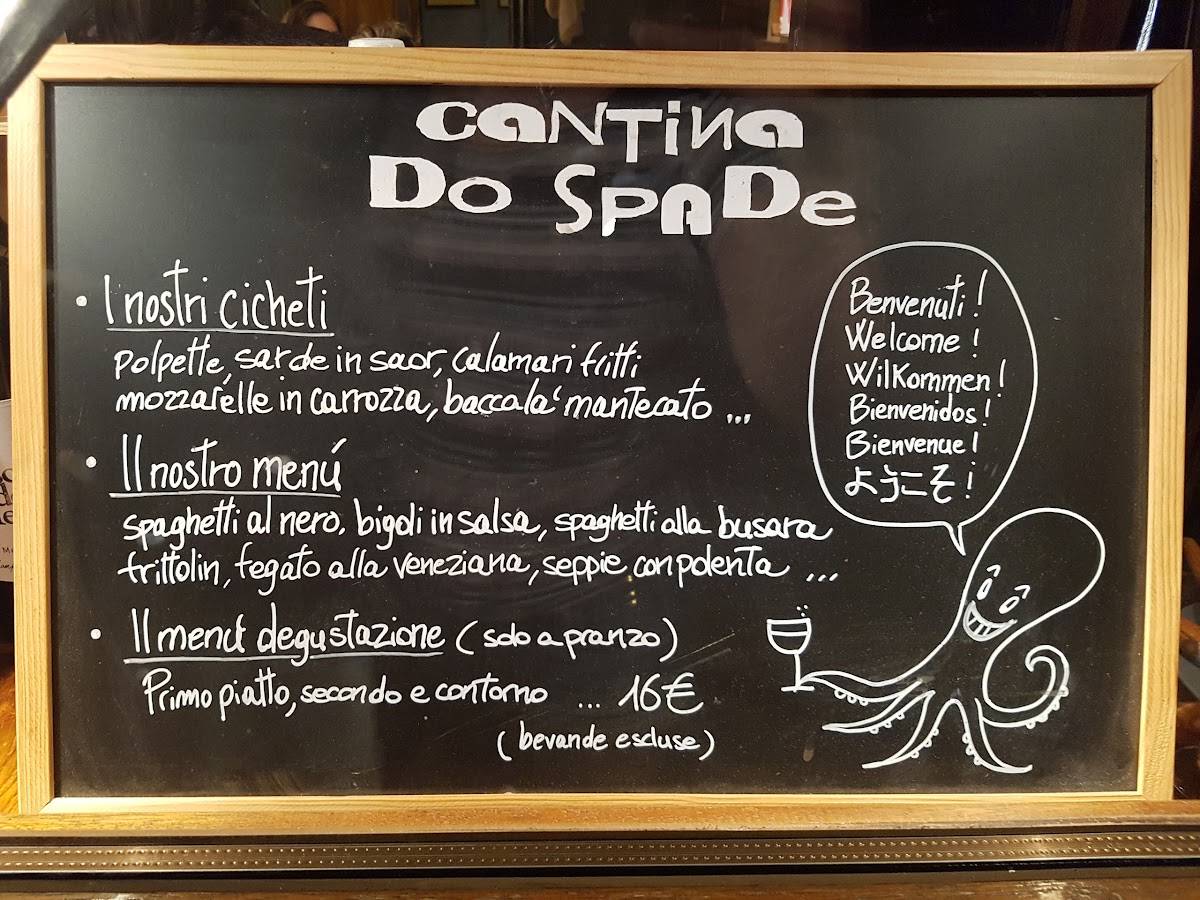 CANTINA
DO SPADE
• I nostri cicheti
polpette, sarde in saor, calamari fritti
mozzarelle in carrozza, baccala' mantecato ...
• Il nostro menú
spaghetti al nero, bigoli in salsa, spaghetti alla busara
frittolin, fegato alla veneziana, seppie con polenta ...
• Il menú degustazione (solo a pranzo)
Primo piatto, secondo e contorno ... 16€
(bevande escluse)
Benvenuti!
Welcome!
Wilkommen!
Bienvenidos!
Bienvenue!
ようこそ!